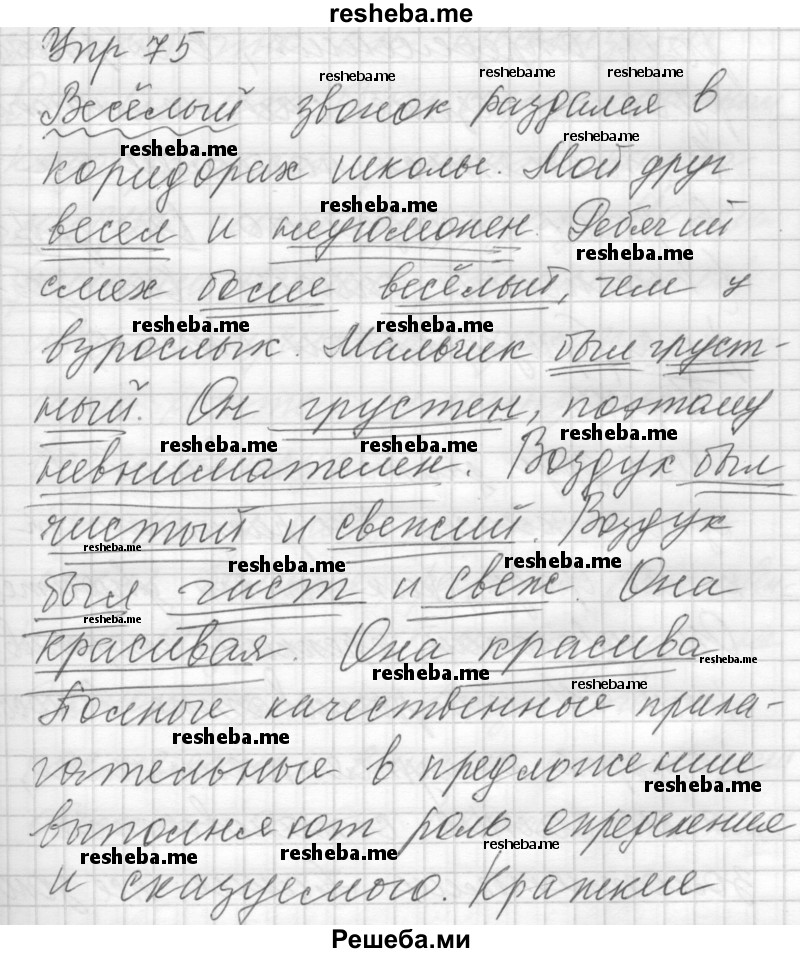 resheba.me
Упр 75
resheba.me resheba.me resheba.me
Весёлый звонок раздался в
resheba.me
resheba.me
коридорах школы. Мой друг
resheba.me
весел и неугомонен. Ребячий
resheba.me
смех более весёлый, чем у
resheba.me resheba.me
взрослых. Мальчик был груст-
ный. Он грустен, поэтому
resheba.me resheba.me resheba.me
невнимателен. Воздух был
чистый и свежий. Воздух
resheba.me resheba.me resheba.me
был чист и свеж. Она
resheba.me
красивая. Она красива
resheba.me resheba.me
resheba.me
Полные качественные прила-
resheba.me
гательные в предложение
resheba.me
выполняют роль определение
resheba.me resheba.me resheba.me
и сказуемого. Краткие
Решеба.ми